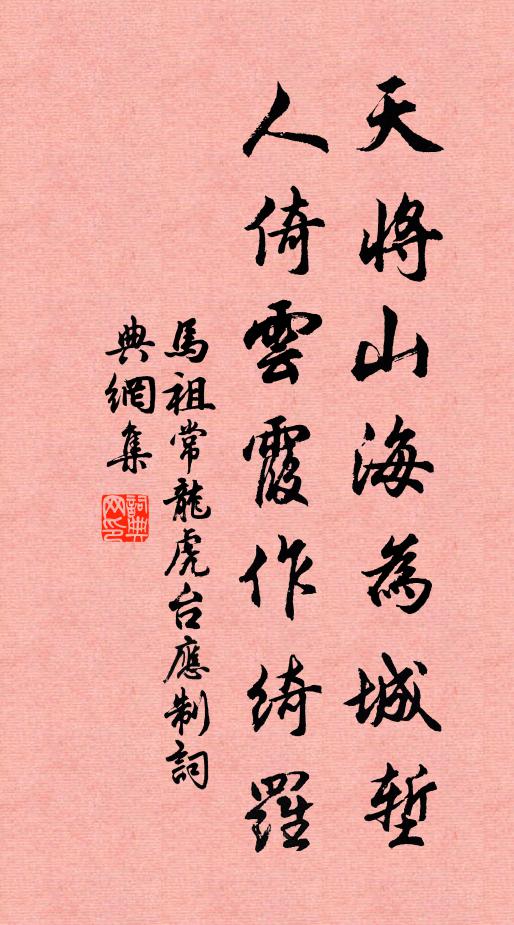 天將山海為城塹
人倚雲霞作綺羅
馬祖常龍虎台應制詞
典網集
詞典
网印